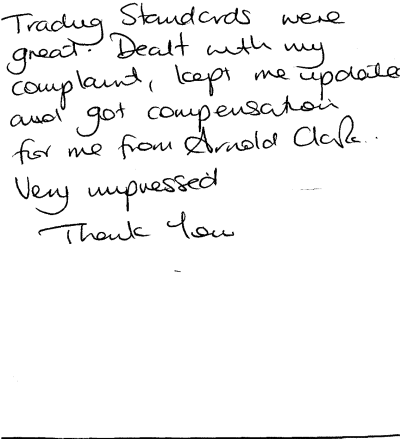 Trading Standards were
great. Dealt with my
complaint, kept me update
and got compensation
for me from Arnold Clark.
Very impressed
Thank You